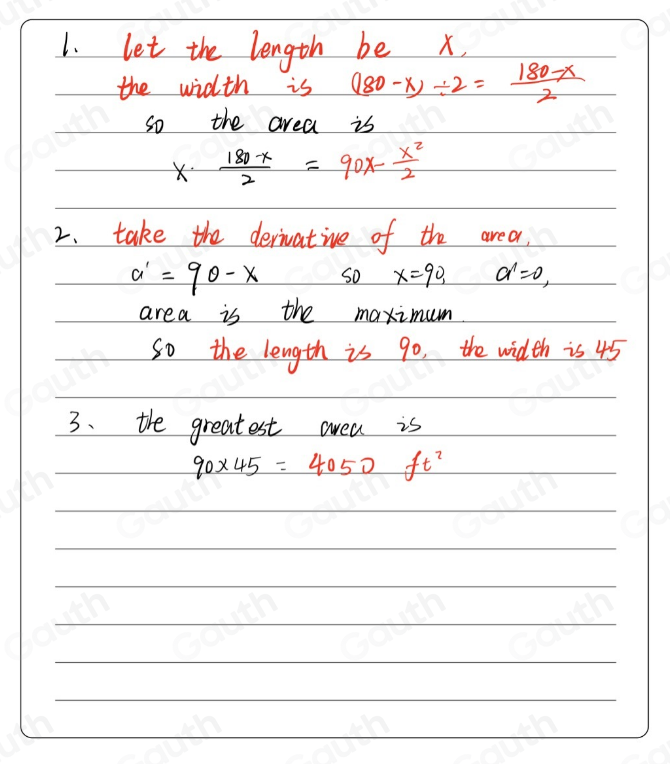 1. let the length be x,
the width is (180-x)÷2= \frac{180-x}{2}
so the area is
x· \frac{180-x}{2} = 90x- \frac{x²}{2}
2. take the derivative of the area,
a' = 90-x so x=90, a'=0,
area is the maximum.
so the length is 90, the width is 45
3. the greatest area is
90x45 = 4050 ft²